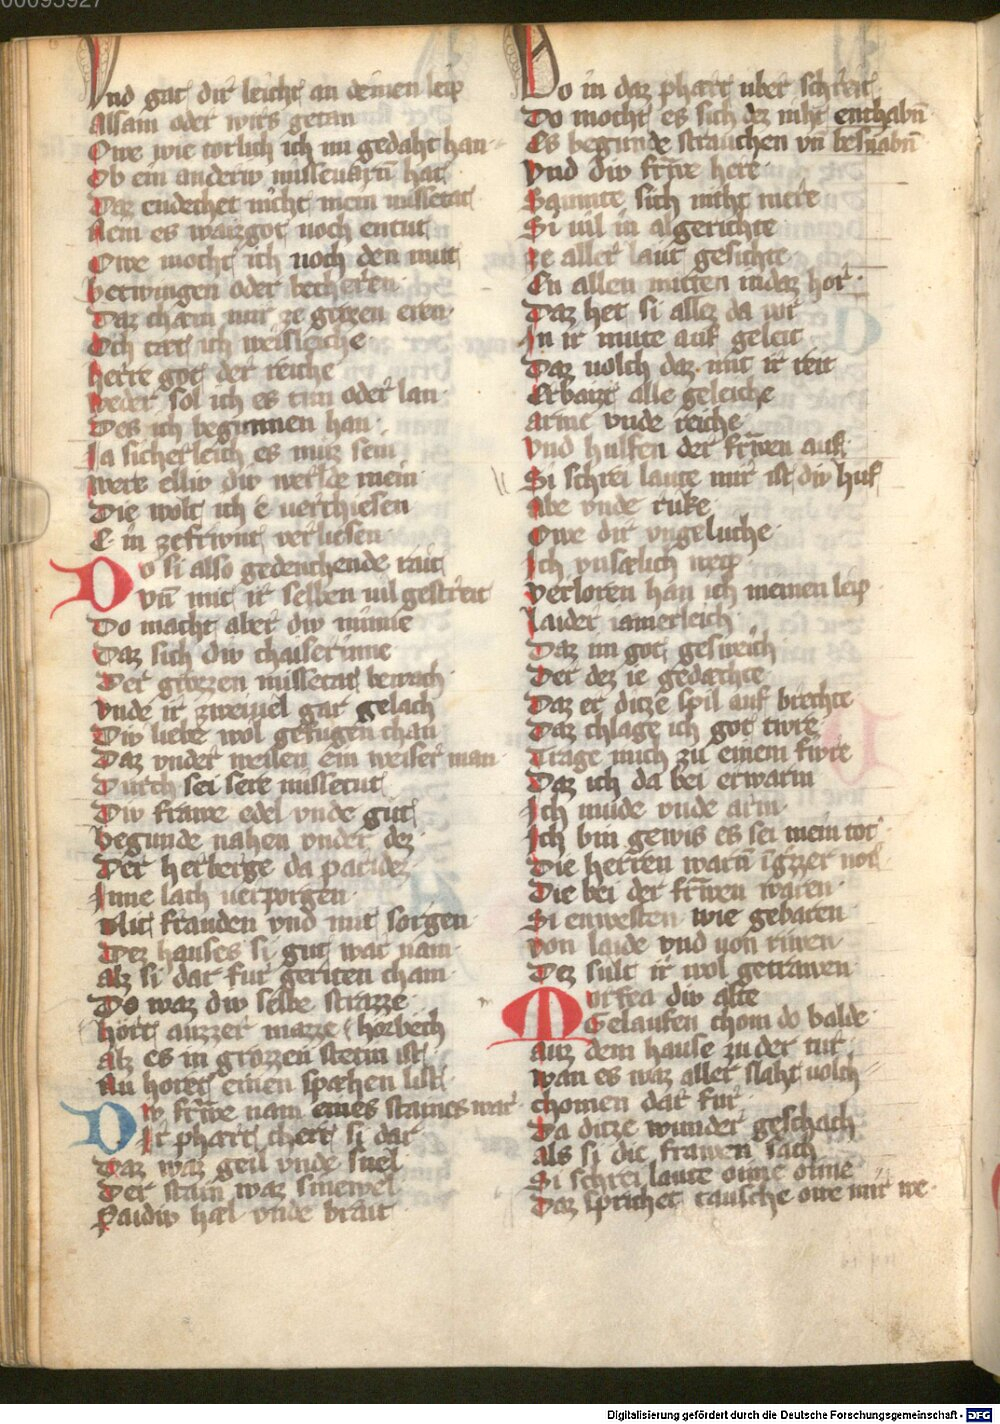 00095927
Vnd gat dir leicht an deinen leip
Alsam oder wirs getan
Owe wie torlich ich nu gedaht han
Ob ein anderiv missevarn hat
Daz endechet niht mein missetat
Nem es waizgot noch entut
Owe mocht ich noch den mut
betwingen oder becheren
Daz chæm mir ze grozen eren
Ich tæt ich weisleiche
herre got der reiche
weder sol ich es tun oder lan
Des ich begunnen han
Ja sicherleich es muz sein
wers elliv div werlde mein
Die wolt ich e verchiesen
E in zefriunt verliesen
Do si also gedenchende rait
Vn mit ir selben vil gestreit
Do macht aber div minne
Daz sich div chaiserinne
Der grozzen missetat bewach
Vnde ir zweivel gar gelach
Div liebe wol gefugen chan
Daz vnder weilen ein weiser man
Durch sei sere missetut
Div frawe edel vnde gut
begunde nahen vnder dez
Der herberge da paridez
Inne lach verporgen
Mit frauden vnd mit sorgen
Dez hauses si gut war nam
Alz si dar fur geriten cham
Do waz div selbe strazze
hort auzzer mazze horbech
Alz es in grozzen steten ist
Nu horet einen spæhen list
Div frwe nam eines staines war
Ir phært chert si dar
Daz waz geil vnde snel
Der stain waz sinewel
Paidiv hæl vnde brait
Do in daz phært vber schreit
Do mocht es sich dez niht enthabn
Es begunde strauchen vn besnabn
Vnd div frwe here
Saumte sich niht mere
Si viel in algerichte
ze aller laut gesichte
En allen mitten indaz hor
Daz het si allez da vor
In ir mute auf geleit
Daz volch daz mit ir reit
Erbaizt alle geleiche
arme vnde reiche
Vnd hulfen der frwen auf
Si schrei laute mir ist div huf
Abe vnde ruke
Owe dir vngeluche
Ich vnsælich weip
Verloren han ich meinen leip
Laider iamerleich
Daz im got gesweich
Der dez ie gedæchte
Daz er ditze spil auf bræchte
Daz chlage ich got tiwre
Trage mich zu einem fiwre
Daz ich da bei erwarm
Ich mude vnde arm
Ich bin gewis es sei mein tot
Die herren warn in grozzer not
Die bei der frwen waren
Si enwesten wie gebaren
von laide vnd von riwen
Dez sult ir wol getrawen
Morfea div alte
Gelaufen chom do balde
auz dem hause zu der tur
wan es waz aller slaht volch
chomen dar fur
Da ditze wunder geschach
Als si die frawen sach
Si schrei laute oime oime
Daz sprichet tausche owe mir we
Digitalisierung gefördert durch die Deutsche Forschungsgemeinschaft - DFG